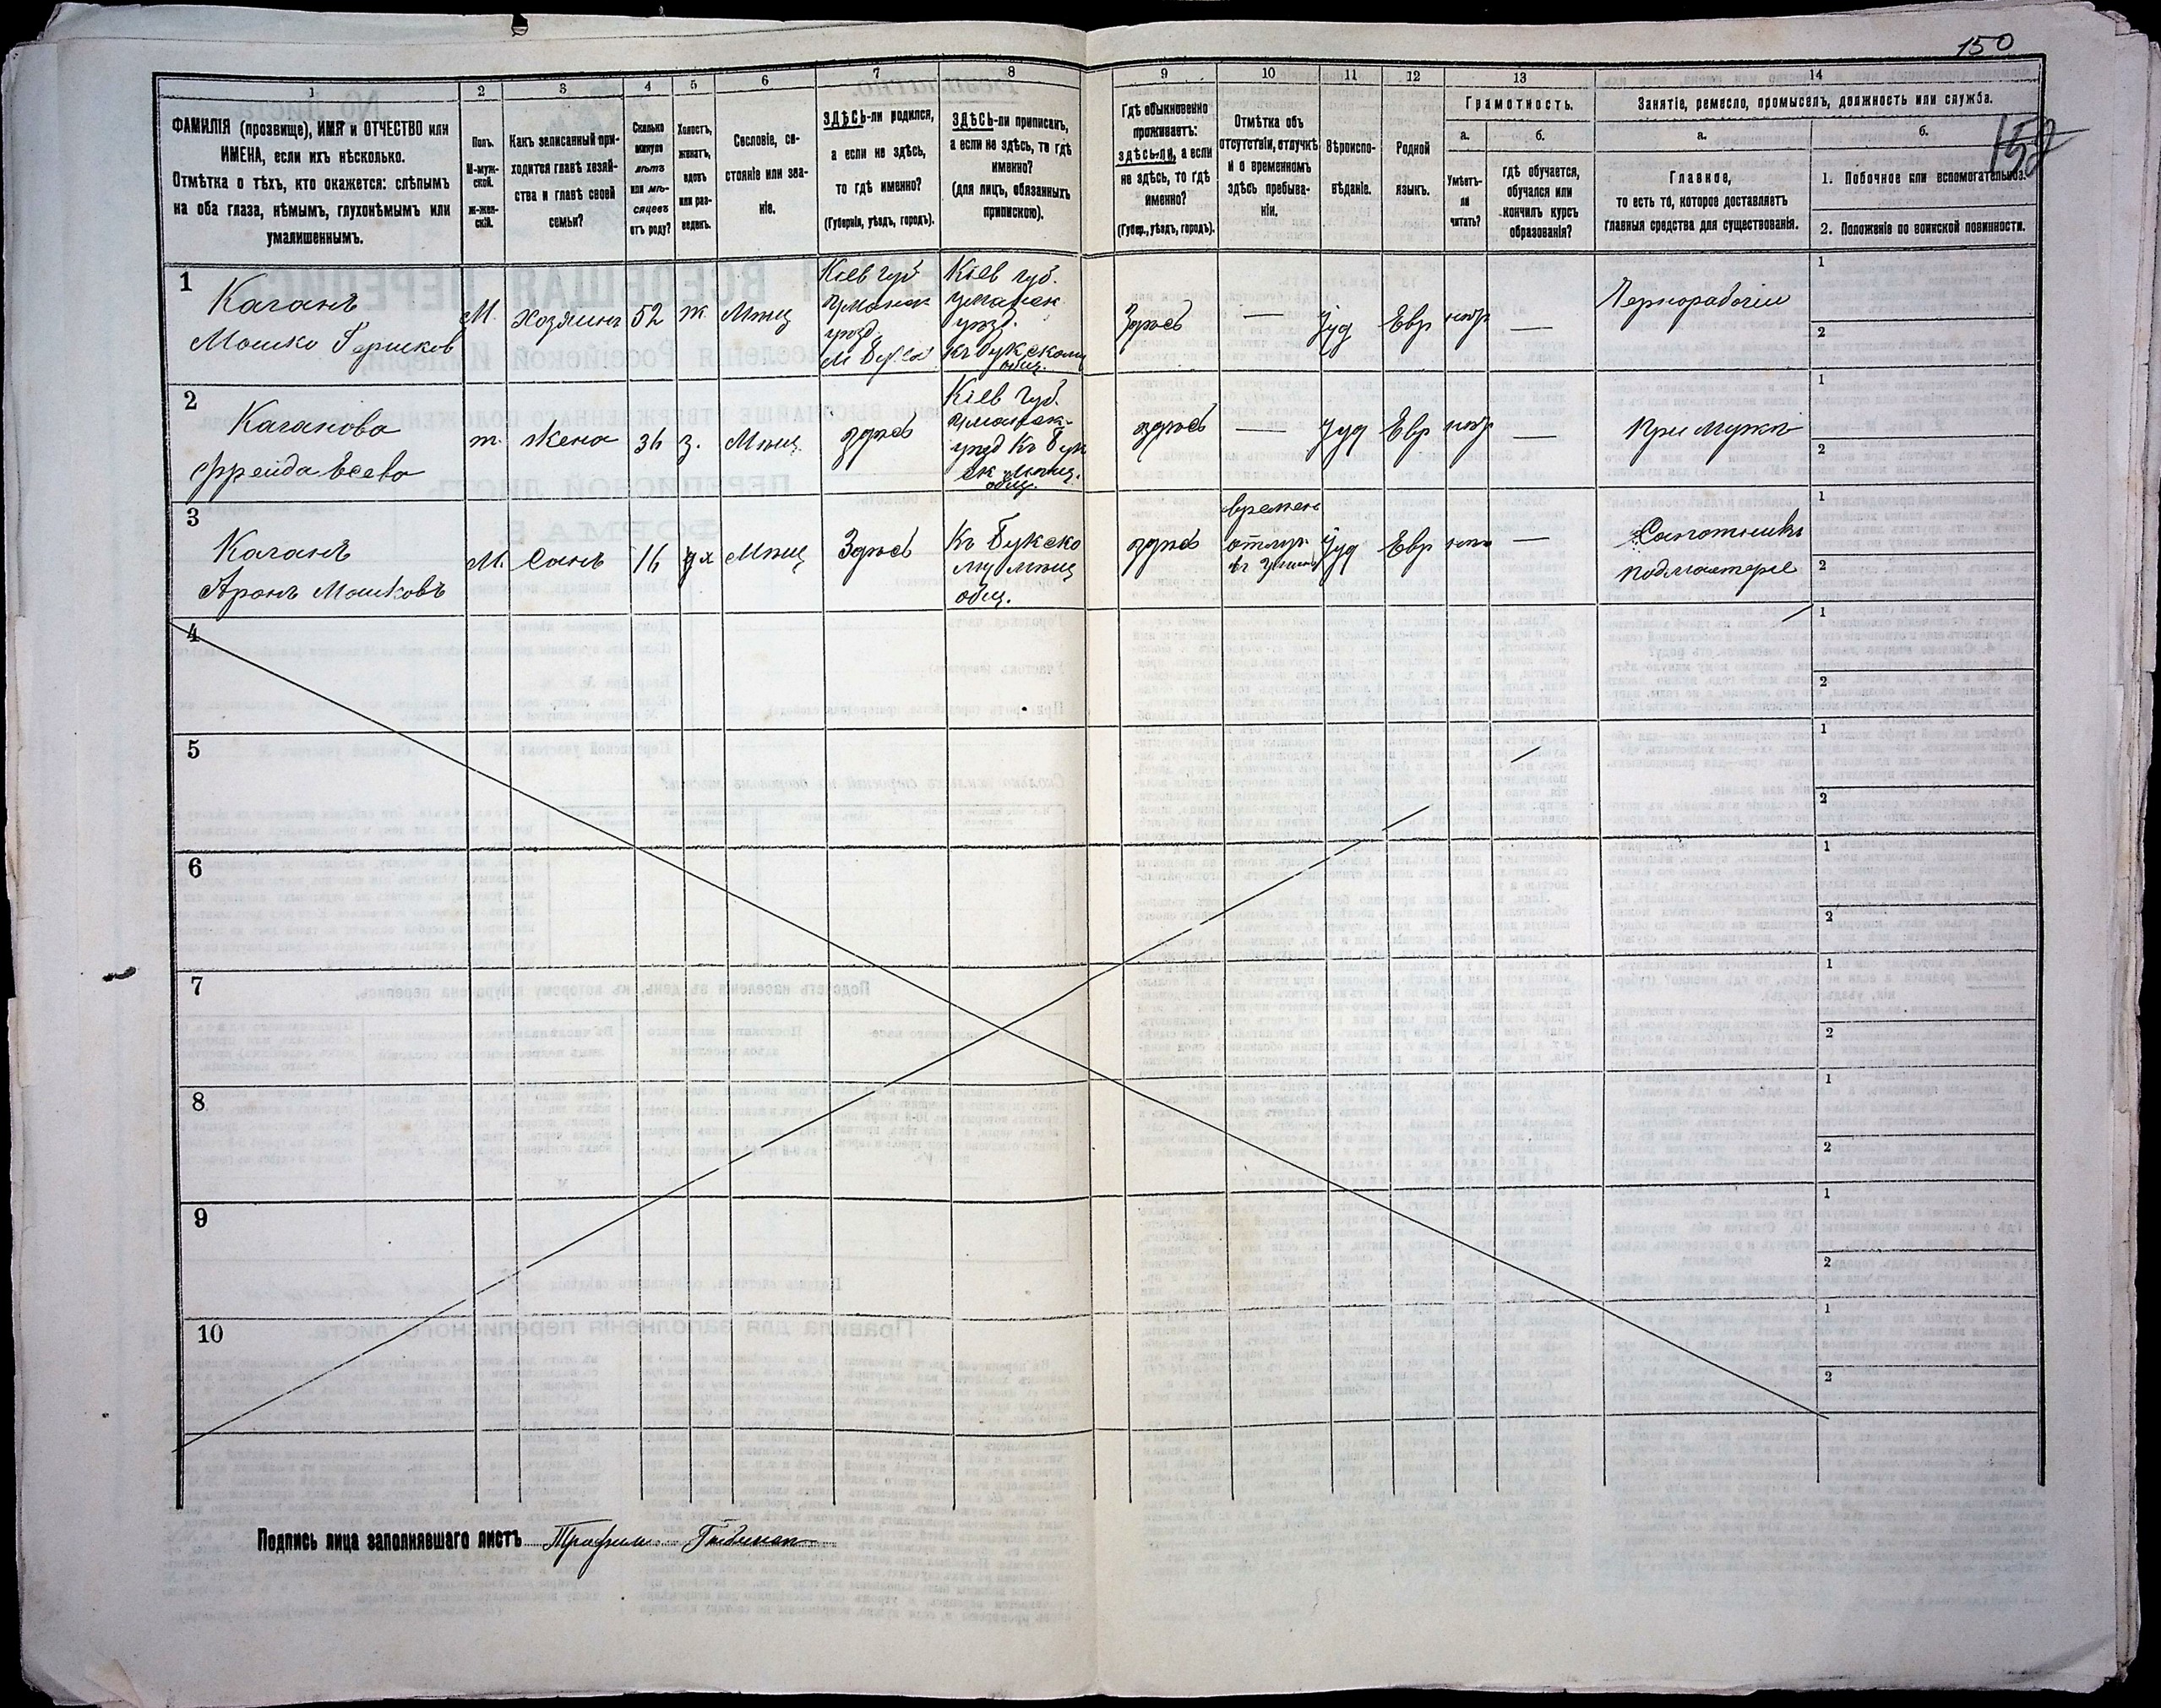 150
158
1
2
3
4
5
6
7
8
9
10
11
12
13
14
ФАМИЛІЯ (прозвище), ИМЯ и ОТЧЕСТВО или
ИМЕНА, если ихъ нѣсколько.
Отмѣтка о тѣхъ, кто окажется: слѣпымъ
на оба глаза, нѣмымъ, глухонѣмымъ или
умалишеннымъ.
Полъ.
М-муж-
ской.
ж-жен-
скій.
Какъ записанный при-
ходится главѣ хозяй-
ства и главѣ своей
семьи?
Сколько
минуло
лѣтъ
или мѣ-
сяцевъ
отъ роду?
Холостъ,
женатъ,
вдовъ
или раз-
веденъ.
Сословіе, со-
стояніе или зва-
ніе.
ЗДѢСЬ-ли родился,
а если не здѣсь,
то гдѣ именно?
(Губернія, уѣздъ, городъ).
ЗДѢСЬ-ли приписанъ,
а если не здѣсь, то гдѣ
именно?
(для лицъ, обязанныхъ
припискою).
Гдѣ обыкновенно
проживаетъ:
здѣсь-ли, а если
не здѣсь, то гдѣ
именно?
(Губер., уѣздъ, городъ).
Отмѣтка объ
отсутствіи, отлучкѣ
и о временномъ
здѣсь пребыва-
ніи.
Вѣроиспо-
вѣданіе.
Родной
языкъ.
Грамотность.
а.
б.
Умѣетъ-
ли
читать?
гдѣ обучается,
обучался или
кончилъ курсъ
образованія?
Занятіе, ремесло, промыселъ, должность или служба.
а.
б.
Главное,
то есть то, которое доставляетъ
главныя средства для существованія.
1. Побочное или вспомогательное.
2. Положеніе по воинской повинности.
1
Каганъ
Мошко Гершков
М.
хозяинъ
52
ж
Мѣщ
Кіев губ
Уманск
уѣзд.
м Буки
Кіев губ.
Уманск
уѣзд.
къ Букскому
общ.
Здѣсь
—
Іуд
Евр
нѣт
—
Чернорабочій
1
2
2
Каганова
Фрейда
ж.
жена
36
з.
Мѣщ.
здѣсь
Кіев губ.
Уманск.
уѣзд къ Бук
ск мѣщ.
общ.
здѣсь
—
Іуд
Евр
нѣт
—
При мужѣ
1
2
3
Каганъ
Аронъ Мошковъ
М.
Сынъ
16
Мѣщ
Здѣсь
Къ Букско
му мѣщ
общ.
здѣсь
времен
отлуч
Іуд
Евр
—
Сапожникъ
подмастерье
1
2
4
1
2
5
1
2
6
1
2
7
1
2
8
1
2
9
1
2
10
1
2
Подпись лица заполнявшаго листъ